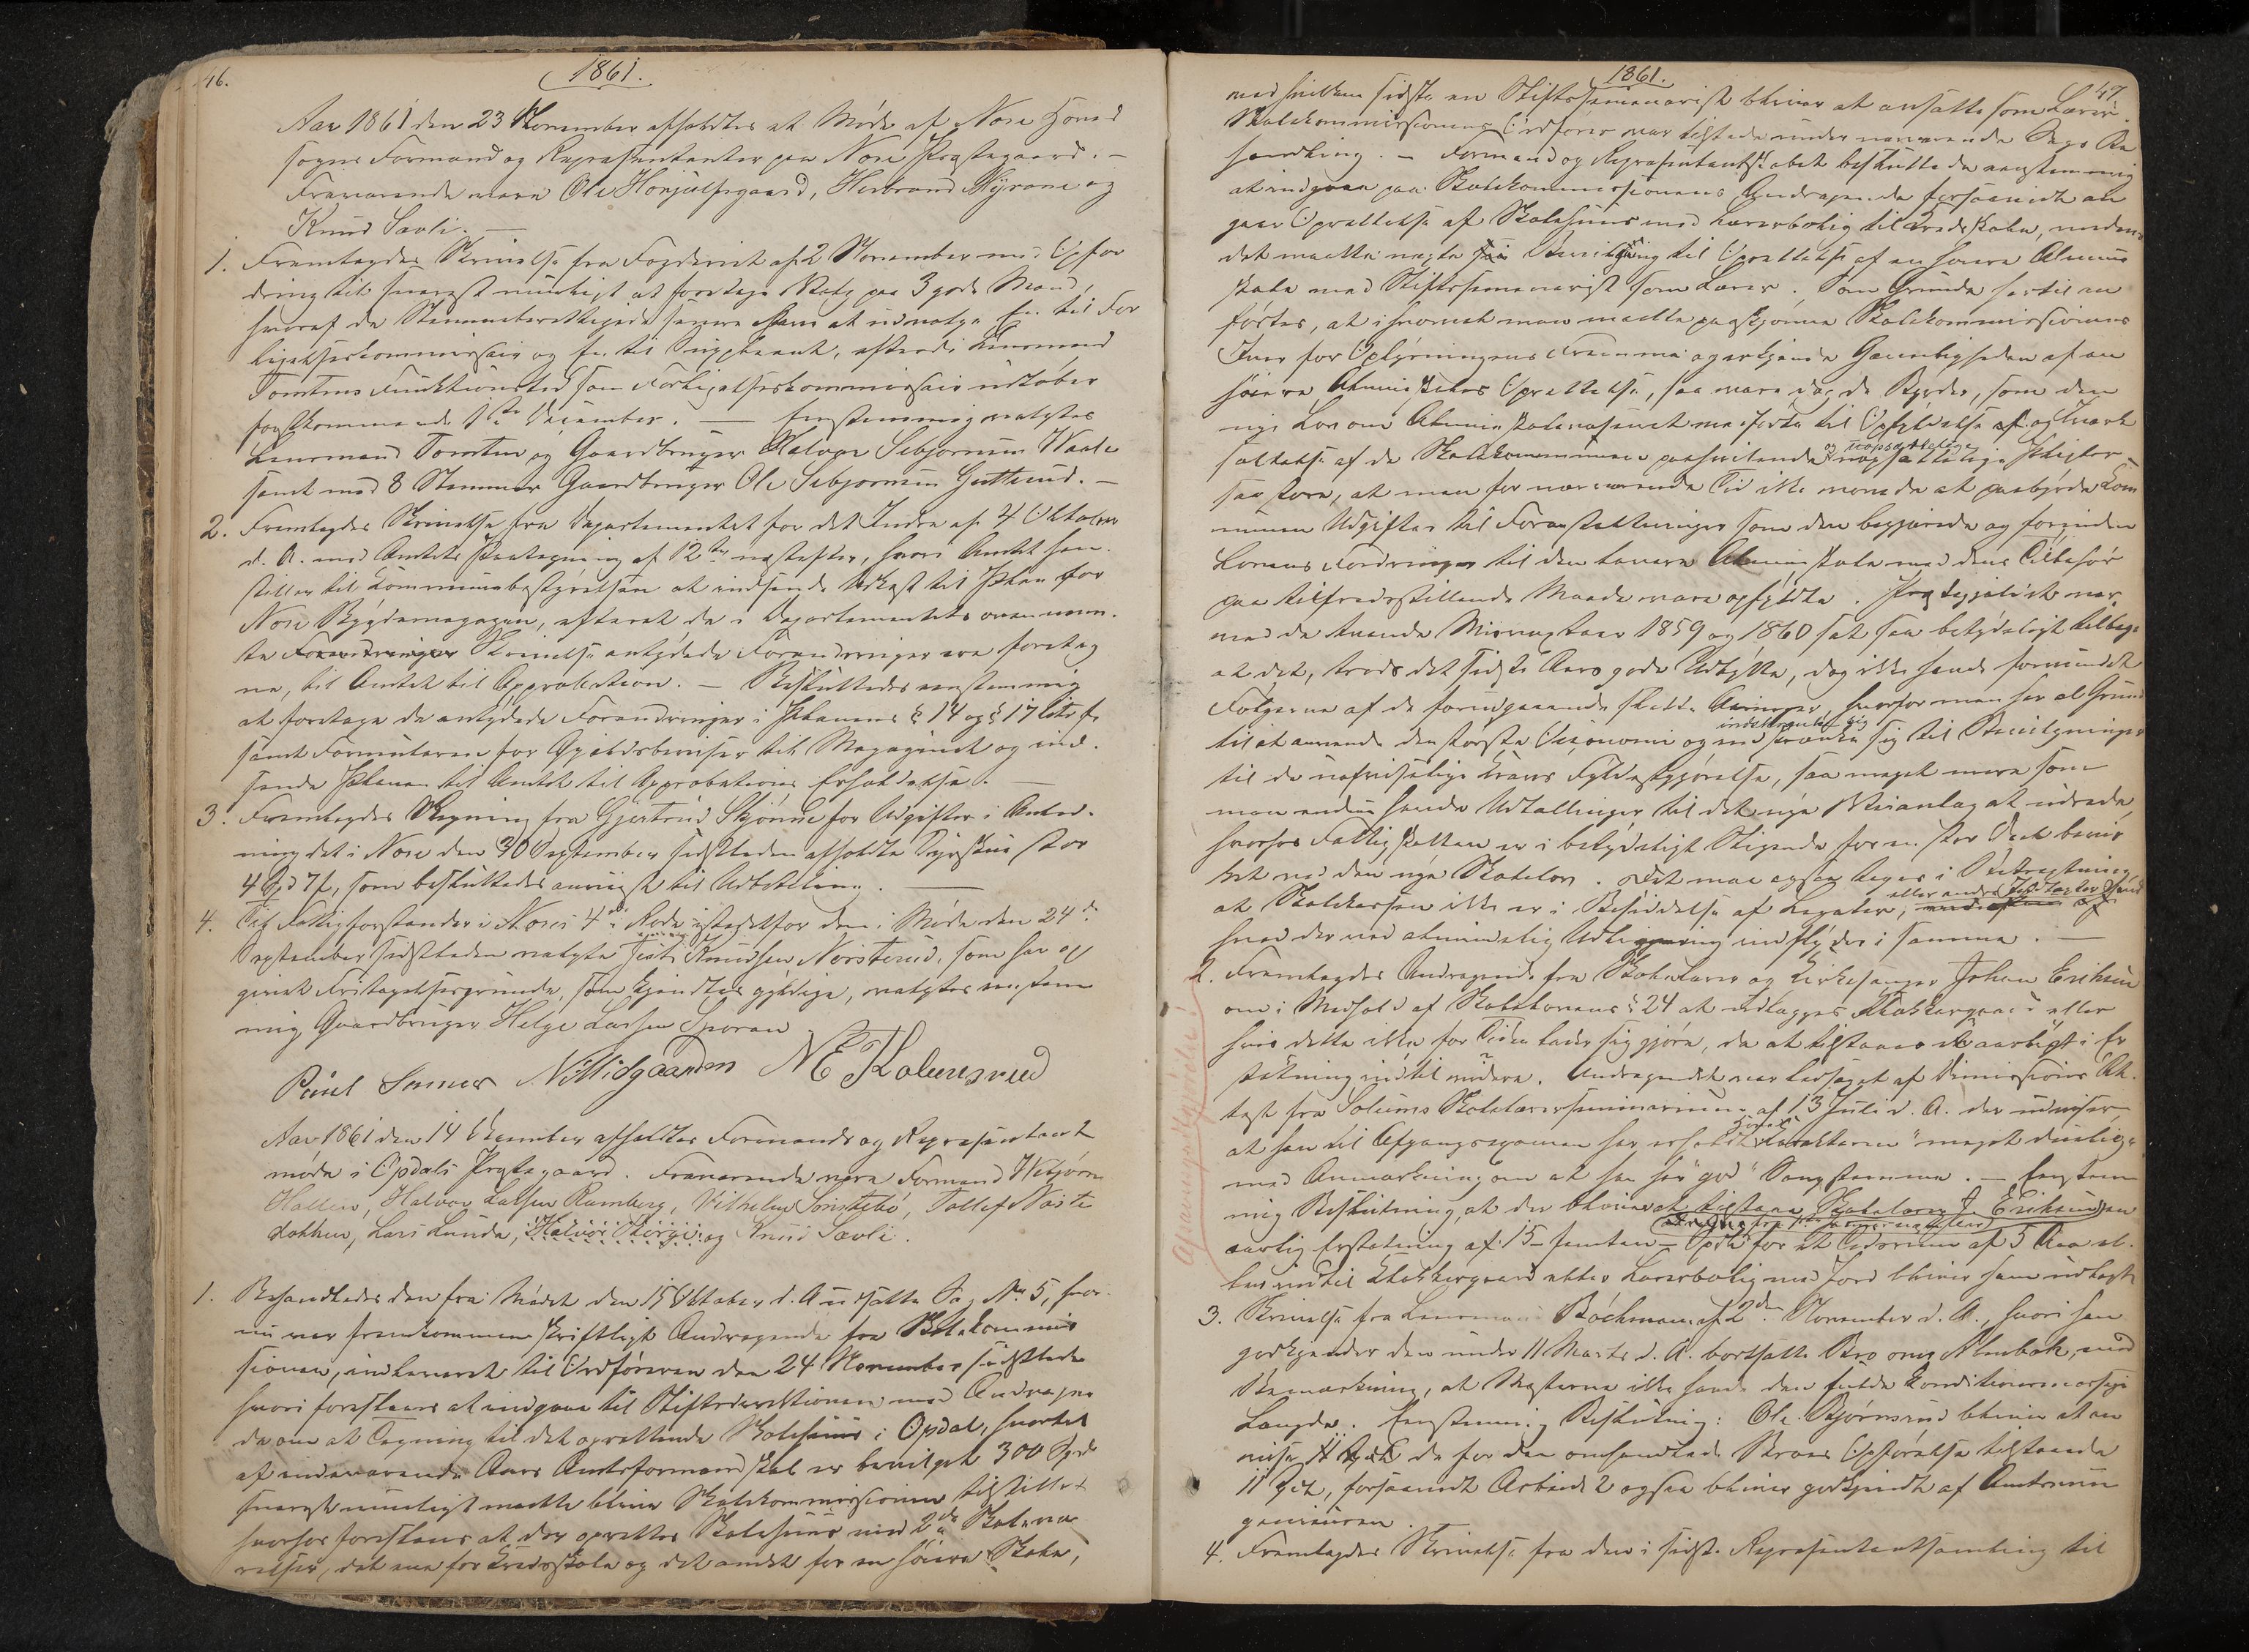 46.
1861.
Aar 1861 den 23 November afholdtes et Møde af Nore Hoved
sogns Formænd og Repræsentanter paa Nore Præstegaard. –
Fraværende vare Ole Honjulsgaard, Herbrand Myrane og
Knud Søvli. –
1. Fremlagdes Skrivelse fra Fogderiet af 2 November med Opfor
dring til snarest muligt at foretage Valg paa 3 gode Mænd,
hvoraf de Stemmeberettigede senere have at udvælge En til For
ligelseskommissair og En til Suppleant, efterdi Lensmand
Tomtens Funktionstid som Forligelseskommissair udløber
førstkommende 1ste December. – Eenstemmig valgtes
Lensmand Tomten og Gaardbruger Halvor Sebjørnsen Waale
samt med 8 Stemmer Gaardbruger Ole Sebjørnsen Guttered. –
2. Fremlagdes Skrivelse fra Departementet for det Indre af 4 Oktober
d. A. med Amtets Paategning af 12te næstefter, hvori Amtet hen-
stiller til Kommunebestyrelsen at indsende Udkast til Plan for
Nore Bygdemagazin, efterat de i Departementets ovennævn-
te Skrivelse antydede Forandringer ere foretag
ne, til Amtet til Approbation. – Besluttedes eenstemmig
at foretage de antydede Forandringer i Planens § 14 og § 17 litr. f.
samt Formularen for Gjældsbeviser til Magazinet og ind-
sende Planen til Amtet til Approbations Erholdelse. –
3. Fremlagdes Regning fra Gjertrud Skjønne for Udgifter i Anled-
ning det i Nore den 30 September sidstleden afholdte Dyrskue stor
4 Spd 7 s, som besluttedes anviist til Udbetaling. –
4. Til Fattigforstander i Nores 4de Rode istedetfor den i Møde den 24de
September sidstleden valgte Knudsen Norsterud, som har op
givet Fritagelsesgrunde, som kjendtes gyldige, valgtes eenstem
mig Gaardbruger Helge Larsen Sporan
Paul Sønner N. Midgaarden N E Kolensrud
Aar 1861 den 14 December afholdtes Formands og Repræsentant
møde i Opdals Præstegaard. Fraværende vare Formand Webjørn
Hallen, Halvor Larsen Ramberg, Vilhelm Sønstebø, Tollef Nørste
dokken, Lars Lunde, Halvor Skørge og Knud Søvli.
1. Behandledes den fra Mødet den 15 Oktober d. A. udsatte Sag No 5, hvor
nu var fremkommen skriftligt Andragende fra Skolekommis
sionen, indleveret til Ordføreren den 24 November sidstleden
hvori foreslaaes at indgaae til Stiftsdirektionen med Andragen
de om at Tegning til det oprettende Skolehuus i Opdal, hvortil
af indeværende Aars Amtsformandskab er bevilget 300 Spd
snarest muligt maatte blive Skolekommissionen tilstillet
hvorhos foreslaaes at der oprettes Skolehuus med 2de Skolevæ
relser, det ene for Kredsskole og det andet for en høiere Skole,
1861.
47
ved hvilken sidste en Stiftsseminarist bliver at ansætte som Lærer.
Skolekommissionens Ordfører var tilstede under nærværende Sags Be
handling. – Formænd og Repræsentantskabet besluttede eenstemmig
at indgaae paa Skolekommissionens Andragende forsaavidt an
gaar Oprettelse af Skolehuus med Lærerbolig til Kredsskole, medens
det maatte nægte sin Bevilgning til Oprettelse af en høiere Almue
skole med Stiftsseminarist som Lærer. Som Grunde hertil an
førtes, at ihvorvel man maatte paaskjønne Skolekommissionens
Iver for Oplysningens Fremme og erkjende Gavnligheden af en
høiere Almueskoles Oprettelse, saa vare dog de Byrder, som den
nye Lov om Almueskolevæsenet medførte til Opfyldelse og Iværk
sættelse af de Skolekommunen paahvilende og uopsættelige Pligter
saa store, at man for nærværende Tid ikke vovede at paabyrde Kom
munen Udgifter til Foranstaltninger som den begjærede og forinden
Lovens Fordringer til den lavere Almueskole med dens Tilbehør
paa tilfredsstillende Maade vare opfyldte.
med de tvende Misvæxtaar 1859 og 1860 sat saa betydeligt tilbage
at det, trods det sidste Aars gode Udbytte, dog ikke havde forvundet
Følgerne af de foregaaende slette Aaringer, hvorfor man har al Grund
til at anvende den største Oeconomi og indskrænke sig til Bevilgninger
til de uafviselige Kravs Fyldestgjørelse, saa meget mere som
man endnu havde Udtællinger til det nye Veianlæg at udrede,
hvorhos Fattigskatten er i betydeligt Stigende for en stor Deel bevir
ket ved den nye Skolelov. Det maa ogsaa tages i Betragtning
at Skolekassen ikke er i Besiddelse af Legater, eller andre Indtægter end
hvad der ved almindelig Udligning indflyder i samme. –
2. Fremlagdes Andragende fra Skolelærer og Kirkesanger Johan Eriksen
om i Medhold af Skolelovens § 24 at udlægges Klokkergaard eller
hvis dette ikke for Tiden lader sig gjøre, da at tilstaaes aarligt i Er
statning indtil videre. Andragendet var ledsaget af Dimissions At
test fra Solums Skolelærerseminarium af 13 Juli d. A. der udviser
at han til Afgangsexamen har erholdt Karakteren "meget duelig"
med Anmærkning om at han har "god" Sangstemme. – Eenstem
mig Beslutning, at der bliver at tilstaae Skolelærer J. Eriksen en
aarlig Erstatning af 15 – femten – Spd for et Tidsrum af 5 Aar el
ler indtil Klokkergaard eller Lærerbolig med Jord bliver ham udlagt
3. Skrivelse fra Lensmand Bøchman af 2den November d. A., hvori han
godkjender den under 11 Marts d. A. bortsatte Bro over Almbæk, med
Bemærkning, at Masterne ikke havde den fulde konditionsmæssige
Længde. Eenstemmig Beslutning: Ole Bjørnsrud bliver at an
vise de for den omhandlede Broes Opførelse tilstaaede
11 Spd, forsaavidt Arbeidet ogsaa bliver godkjendt af Amtsinge
nieuren.
4. Fremlagdes Skrivelse fra den i sidste Repræsentantsamling til